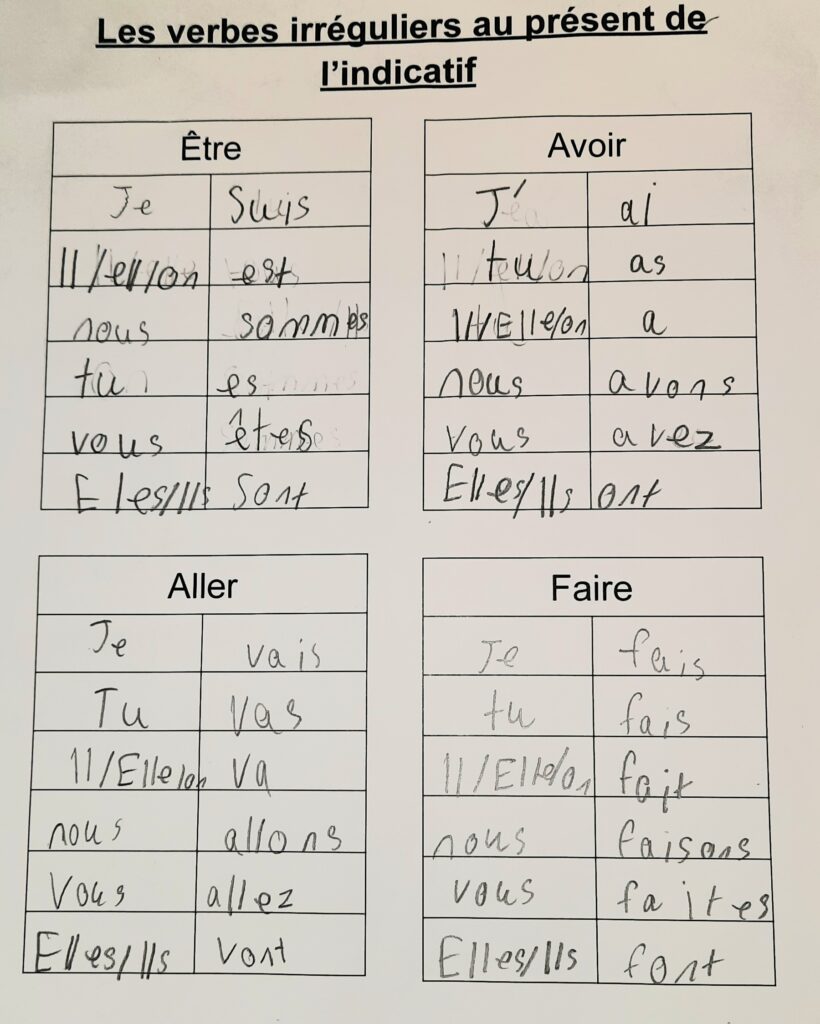 Les verbes irréguliers au présent de
l'indicatif
Être
Je suis
Il/ell/on est
nous sommes
tu es
vous êtes
Eles/Ils sont
Avoir
J' ai
tu as
Il/Elle/on a
nous avons
vous avez
Elles/Ils ont
Aller
Je vais
Tu vas
Il/Elle/on va
nous allons
Vous allez
Elles/Ils vont
Faire
Je fais
tu fais
Il/Elle/on fait
nous faisons
vous faites
Elles/Ils font